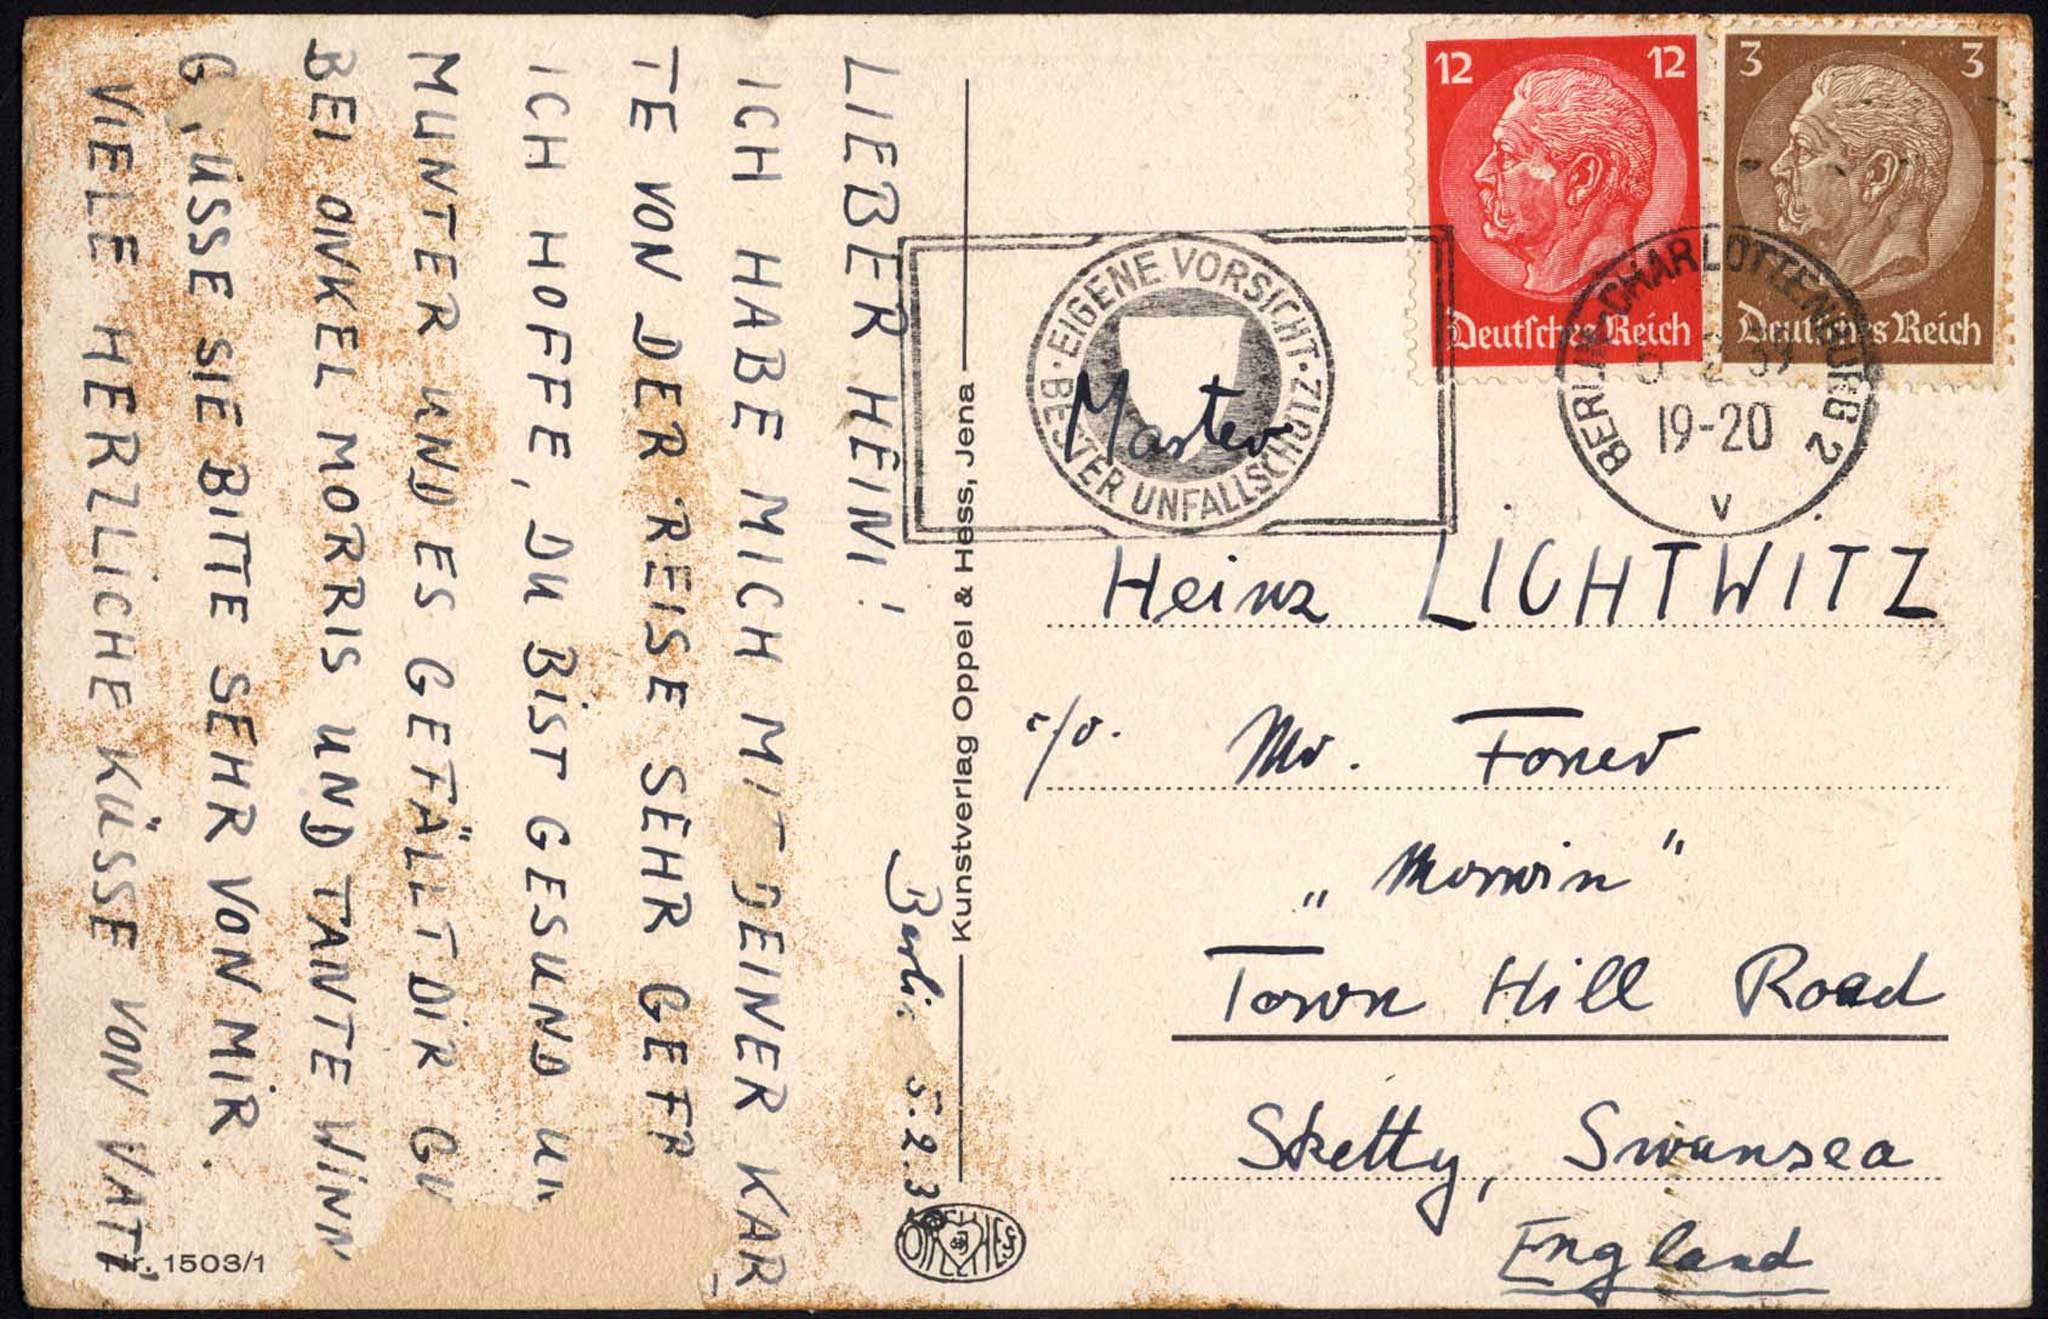 LIEBER HEINI!
ICH HABE MICH MIT DEINER KAR
TE VON DER REISE SEHR GEFR
ICH HOFFE, DU BIST GESUND UN
MUNTER UND ES GEFÄLLT DIR GU
BEI ONKEL MORRIS UND TANTE WINN
G.ÜSSE SIE BITTE SEHR VON MIR.
VIELE HERZLICHE KÜSSE VON VATI
Berli. 5.2.3
Nr. 1503/1
Kunstverlag Oppel & Hess, Jena
OPPEL HESS
12 12
Deutsches Reich
3 3
Deutsches Reich
EIGENE VORSICHT · BESTER UNFALLSCHUTZ
BERLIN-CHARLOTTENBURG 2
5 2 39
19-20
v
Master
Heinz LICHTWITZ
c/o. Mr. Foner
„Morwin“
Town Hill Road
Sketty, Swansea
England